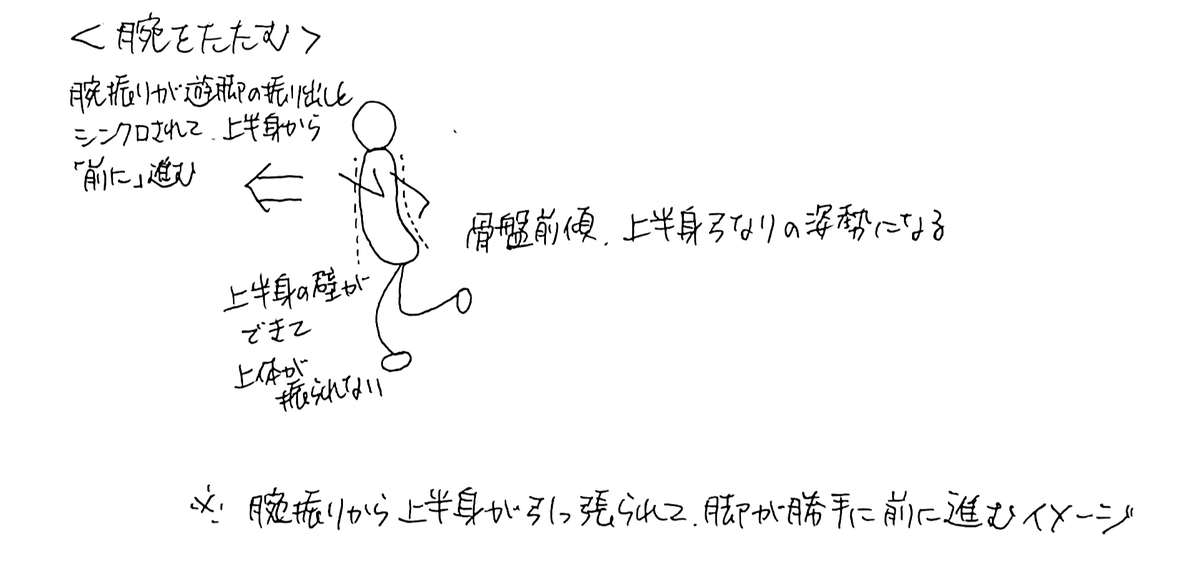 ＜腕をたたむ＞
腕振りが遊脚の振り出しと
シンクロされて、上半身から
「前に」進む
骨盤前傾、上半身弓なりの姿勢になる
上半身の壁が
できて
上体が
振られない
※ 腕振りから上半身が引っ張られて、脚が勝手に前に進むイメージ